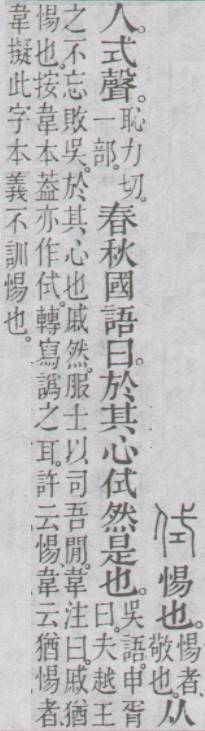 侙 惕也。惕者、敬也。从
人。式聲。恥力切。一部。春秋國語曰。於其心侙然是也。吳語。申胥曰。夫越王
之不忘敗吳。於其心也戚然。服士以司吾閒。韋注曰。戚猶
惕也。按韋本葢亦作侙。轉寫譌之耳。許云惕。韋云猶惕者、
韋擬此字本義不訓惕也。